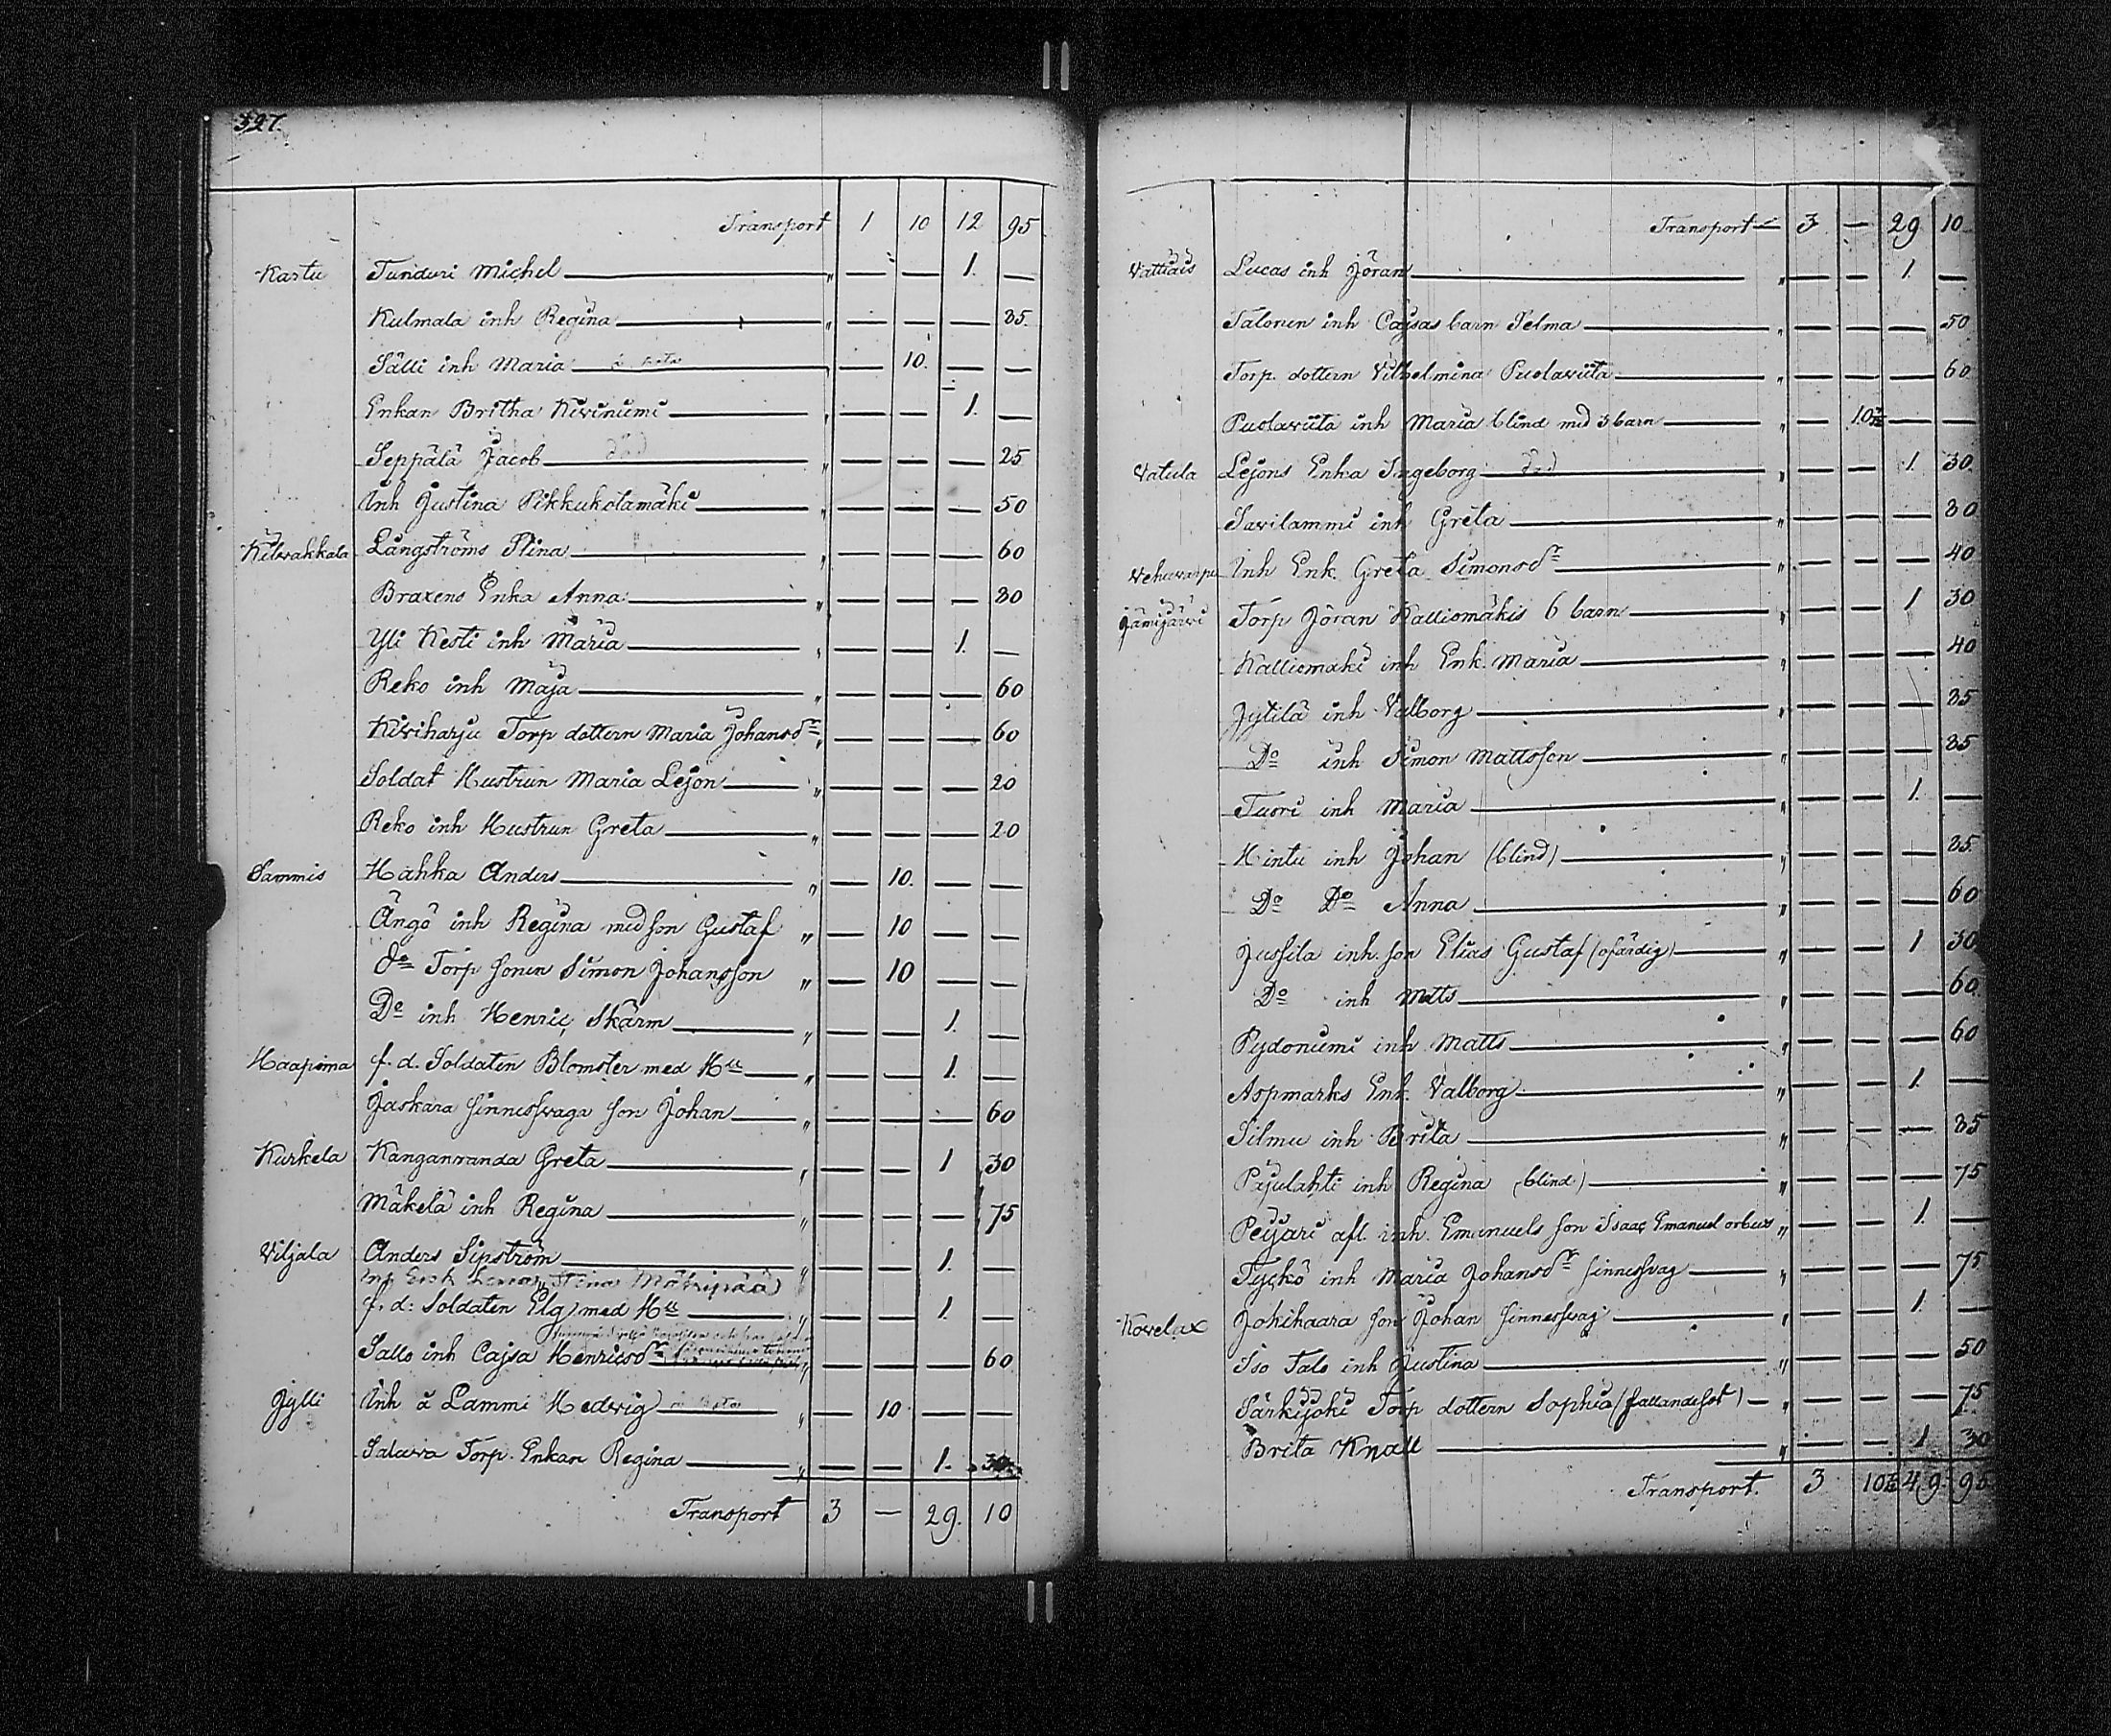 327.
Transport 1 10 12 95
Kartu Tunduri Michel — — 1. —
Kulmala inh Regina — — — 35.
Sälli inh Maria — 10. — —
Enkan Britha Kivinumi — — 1. —
Seppälä Jacob död — — — 25
Inh Justina Pikkukotamäki — — — 50
Kilvakkala Långströms Stina — — — 60
Braxens Enka Anna — — — 30
Yli Kesti inh Maria — — 1. —
Reko inh Maja — — — 60
Kiviharju Torp dottern Maria Johansdr — — — 60
Soldat Hustrun Maria Lejon — — — 20
Reko inh Hustrun Greta — — — 20
Sammis Hahka Anders — 10. — —
Ängö inh Regina med son Gustaf „ — 10 — —
do Torp sonen Simon Johansson „ — 10 — —
Do inh Henric Skärm „ — — 1. —
Haapima f. d. Soldaten Blomster med Hu „ — — 1. —
Jaskara sinnessvaga son Johan „ — — — 60
Kurkela Kanganranda Greta „ — — 1 30
Mäkelä inh Regina „ — — — 75
Viljala Anders Sipström „ — — 1. —
Stina
f. d: Soldaten Elg med Hu „ — — 1. —
Sallo inh Cajsa Henricsdr „ — — — 60
Jylli Inh å Lammi Hedvig „ — 10 — —
Salava Torp. Enkan Regina „ — — 1.
Transport 3 — 29. 10
Transport 3 — 29 10
Vattiais Lucas inh Jöran „ — — 1 —
Talonen inh Cajsas barn Selma „ — — — 50
Torp. dottern Vilhelmina Puolaviita „ — — — 60
Puolaviita inh Maria blind med 3 barn „ — — —
Vatula Lejons Enka Ingeborg död „ — — 1 30
Savilammi inh Greta „ — — — 30
Vehuvarpe Inh Enk. Greta Simonsdr „ — — — 40
Jämijärvi Torp Jöran Kalliomäkis 6 barn „ — — 1 30
Kalliomäki inh Enk. Maria „ — — — 40
Jytilä inh Valborg „ — — — 35
Do inh Simon Mattsson „ — — — 35
Tuori inh Maria „ — — 1. —
Hintu inh Johan (blind) „ — — — 35
Do Do Anna „ — — — 60
Jussila inh. son Elias Gustaf (ofärdig) „ — — 1 30
Do inh Matts „ — — — 60
Pydonumi inh Matts „ — — — 60
Aspmarks Enk. Valborg „ — — 1. —
Silmu inh Brita „ — — — 35
Pajulahti inh Regina (blind) „ — — — 75
Peijari afl. inh. Emanuels son Isaac Emanuel „ — — 1. —
Tyckö inh Maria Johansdr sinnessvag „ — — — 75
Kovelax Johihaara son Johan sinnessvag „ — — 1. —
Iso Talo inh Justina „ — — — 50
Särkijoki Torp dottern Sophia (fallandesot) „ — — — 75
Brita Knall „ — — 1 30
Transport. 3 49. 95